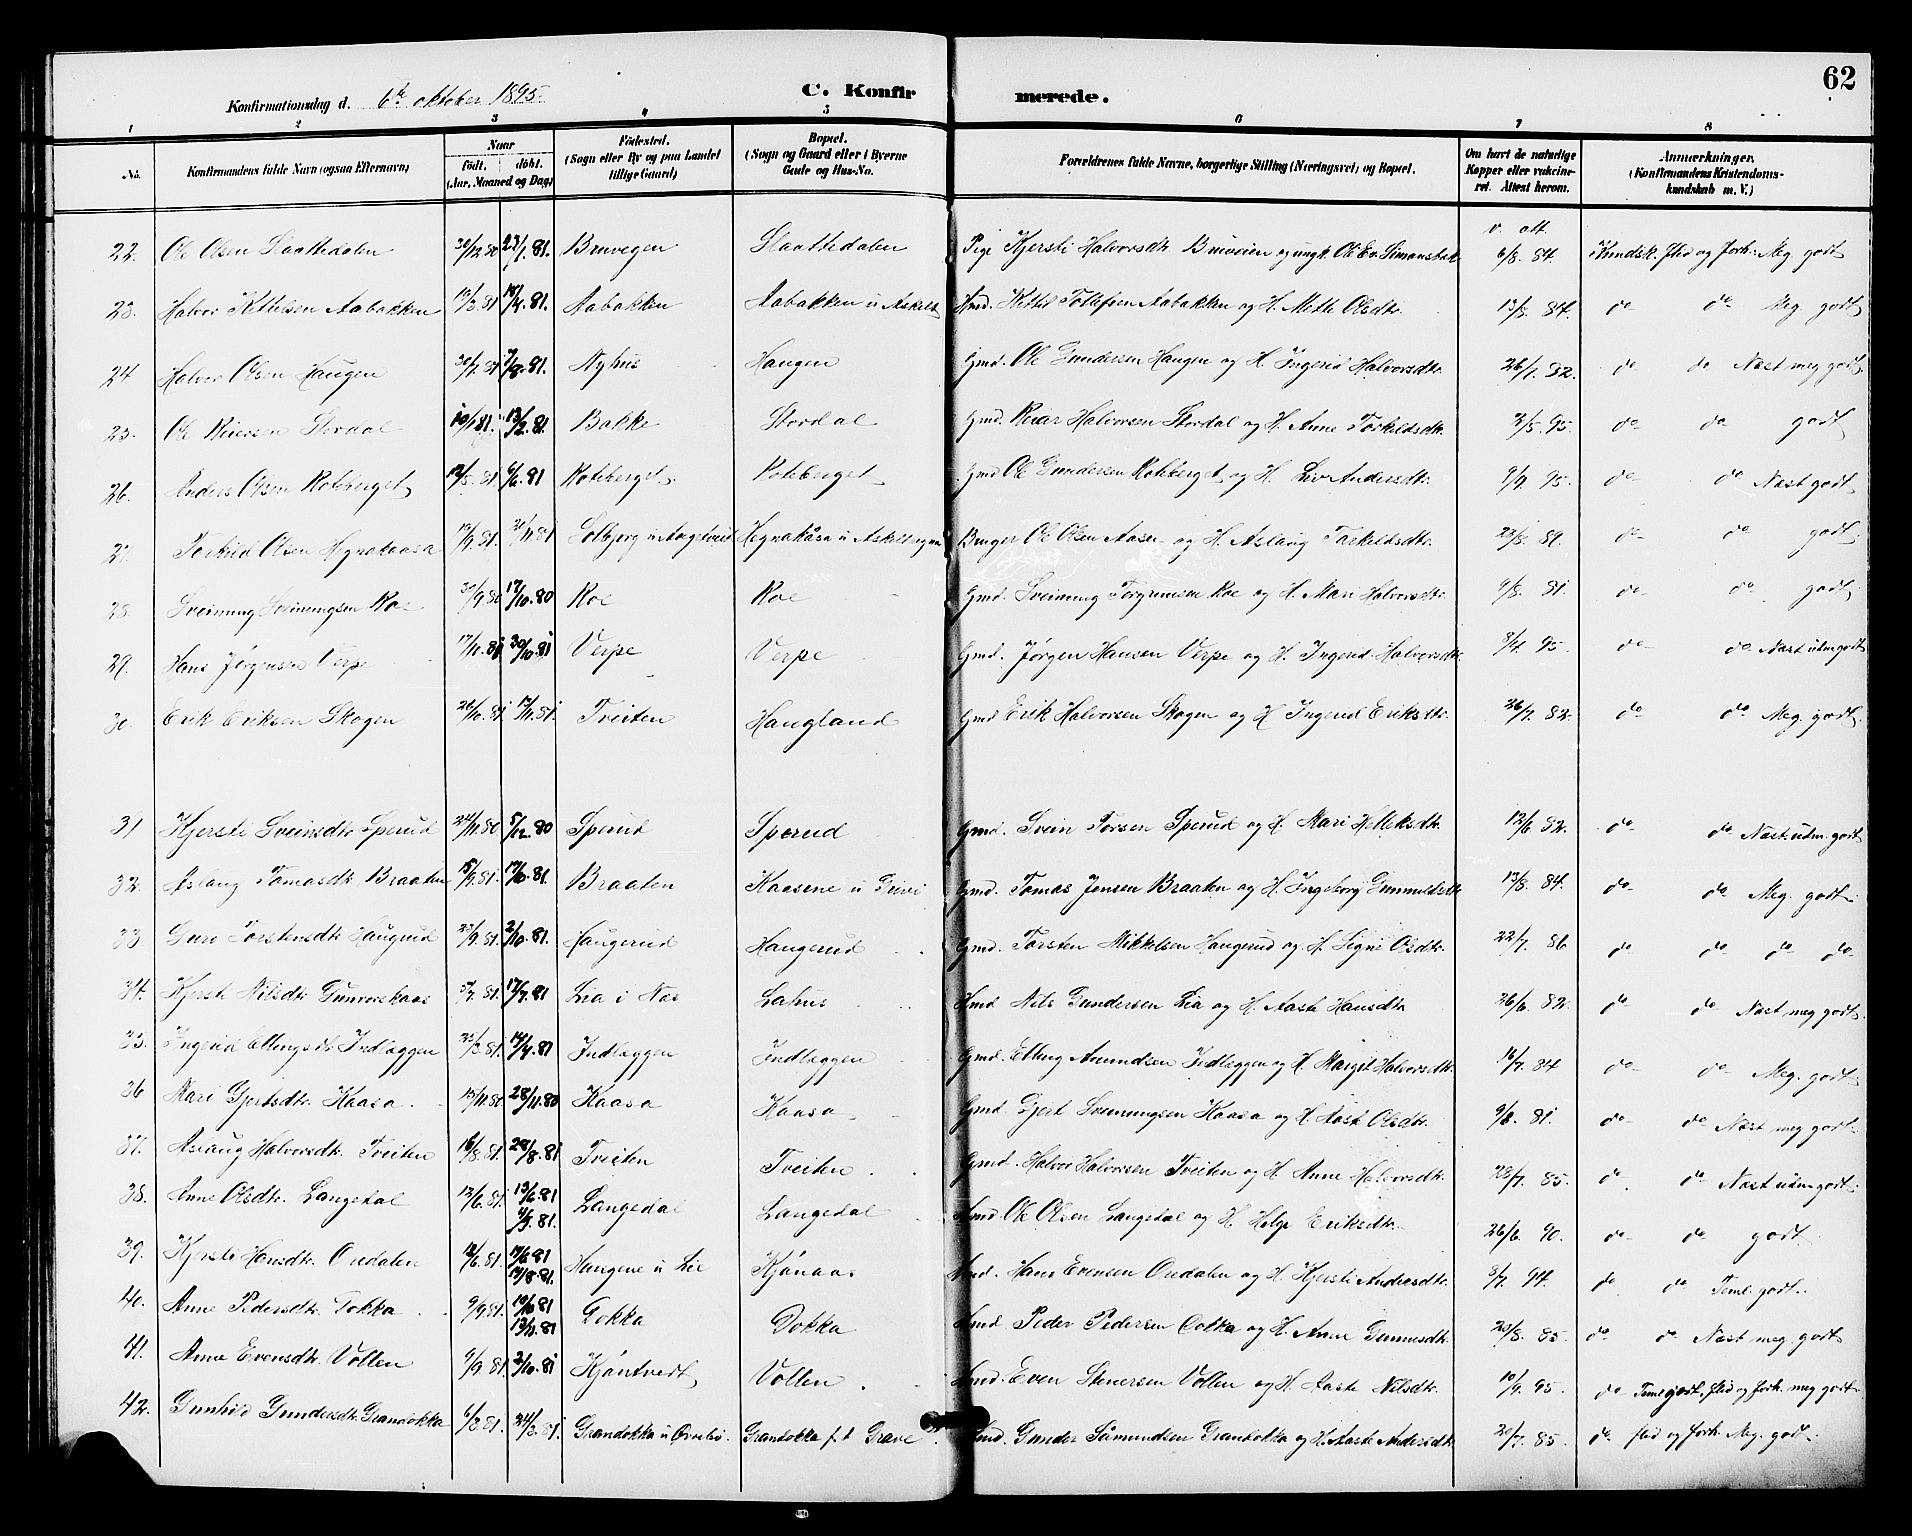 62
Konfirmationsdag d. 6te oktober 1895. C. Konfirmerede.
1 2 3 4 5 6 7 8
No. Konfirmandens fulde Navn (ogsaa Efternavn) Naar födt, döbt. (Aar, Maaned og Dag) Födested. (Sogn eller By og paa Landet tillige Gaard) Bopæl. (Sogn og Gaard eller i Byerne Gade og Hus-No. Forældrenes fulde Navne, borgerlige Stilling (Næringsvei) og Bopæl. Om havt de naturlige Kopper eller vaccineret. Attest herom. Anmærkninger. (Konfirmandens Kristendomskundskab m. V.)
v. att.
22. Ole Olsen Slaattedalen 30/12 80 23/1. 81. Bruvegen Slaattedalen Pige Kjersti Halvorsdtr. Bruveien og ungk. Ole Ev. Simonsbak 6/8. 84. Kundsk. flid og forh. Meg. godt
23. Halvor Kittilsen Aabakken 12/3 81 18/4. 81. Aabakken Aabakken u Askilt Hmd. Kittil Tollefsen Aabakken og H. Mette Olsdtr. 13/8. 84. do do Meg. godt
24 Halvor Olsen Haugen 30/7. 81 7/8. 81. Nyhus Haugen Gmd. Ole Gundersen Haugen og H. Ingerid Halvorsdtr. 26/7. 82. do do Næst meg godt
25. Ole Reiersen Stordal 10/1 81. 13/2. 81. Bakke Stordal Gmd. Reiar Halvorsen Stordal og H. Anne Torkildsdtr. 2/5. 95. do do godt
26. Anders Olsen Roteberget 12/5. 81 6/6. 81 Roteberget Roteberget Gmd Ole Gundersen Roteberget og H. Liv Andersdtr. 9/9. 95. do do Næst godt
27. Torkild Olsen Hegnakaasa 19/9. 81. 20/11 81 Solbjørg u Aagetveit Hegnakåsa u Askeltengen Bruger Ole Olsen Aasen og H. Aslaug Torkildsdtr. 23/8. 89. do do godt
28. Sveinung Sveinungsen Roe 30/9. 80 17/10. 80 Roe Roe Gmd. Sveinung Torgrimsen Roe og H. Mari Halvorsdtr. 9/8. 81. do do godt
29. Hans Jørgensen Verpe 17/11. 81 30/10. 81 Verpe Verpe Gmd. Jørgen Hansen Verpe og H. Ingerid Halvorsdtr. 8/4. 95. do do Næst udm godt
30. Erik Eriksen Skogen 26/10. 81 13/11. 81. Treiten Haugland Gmd Erik Halvorsen Skogen og H Ingerid Eriksdtr. 26/7. 82. do do Meg. godt
31 Kjersti Sveinsdtr Sperud 24/11. 80 5/12. 80 Sperud Sperud Gmd. Svein Torsen Sperud og H. Mari Helleksdtr. 12/6 82. do do Næst udm. godt
32. Aslaug Tomasdtr. Braaten 15/9. 81. 17/10. 81. Braaten Kaasene u Grivi Gmd. Tomas Jensen Braaten og H. Ingeborg Gunnuldsdtr 13/8. 84. do do Meg. godt.
33 Guro Torstensdtr Haugrud 23/9. 81. 2/10. 81. Haugerud Haugerud Gmd. Torsten Mikkelsen Haugerud og H. Signe Olsdtr. 22/7. 86 do do do do
34. Kjersti Nilsdtr Gunvorskaas 5/7. 81. 17/7. 81 Lia i Næs Lahus Hmd Nils Gundersen Lia og H. Aaste Hansdtr 26/6. 82. do do Næst meg godt.
35. Ingerid Ellingsdtr Indlæggen 25/3. 81. 14/4. 81 Indlæggen Indlæggen Gmd. Elling Amundsen Indlæggen og H. Margit Halvorsdtr. 16/7. 84 do do Meg. godt
36 Mari Gjertsdtr. Kaasa 15/11. 80 28/11. 80 Kaasa Kaasa Gmd Gjert Sveinungsen Kaasa og H. Aast Olsdtr. 9/8. 81. do do Næst meg godt.
37. Aslaug Halvorsdtr. Treiten 16/8. 81. 28/8. 81 Treiten Treiten Gmd. Halvor Halvorsen Treiten og H. Anne Halvorsdtr. 28/7. 85. do do Næst udm godt.
38. Anne Olsdtr. Langedal 12/6. 81. 13/6. 81 4/9. 81. Langedal Langedal Hmd Ole Olsen Langedal og H. Helje Eriksdtr. 26/6. 90. do do godt
39. Kjersti Hansdtr. Oredalen 12/6. 81. 17/6. 81 14/8. 81. Haugene u Lie Kjønaas Hmd. Hans Evensen Oredalen og H. Kjersti Andersdtr. 3/7. 94. do do Teml. godt.
40. Anne Pedersdtr. Dokka 9/9 81. 10/10. 81 13/11. 81 Dokka Dokka Hmd Peder Pedersen Dokka og H. Anne Gunnesdtr. 23/8. 85. do do Næst meg. godt
41. Anne Evensdtr. Vollen 9/9. 81. 2/10. 81 Kjøntvedt Vollen. Hmd. Even Stenersen Vollen og H. Aaste Nilsdtr. 10/9. 95. do Teml godt, flid og forh. meg godt
42. Gunhild Gundersdtr. Grandokka 6/3. 81. 24/3. 81. Grandokka u Ørvebø. Grandokka p.t Grave Hmd. Gunder Sämundsen Grandokka og H. Aaste Andersdtr. 20/7. 85. do flid og forh. Meg. godt.